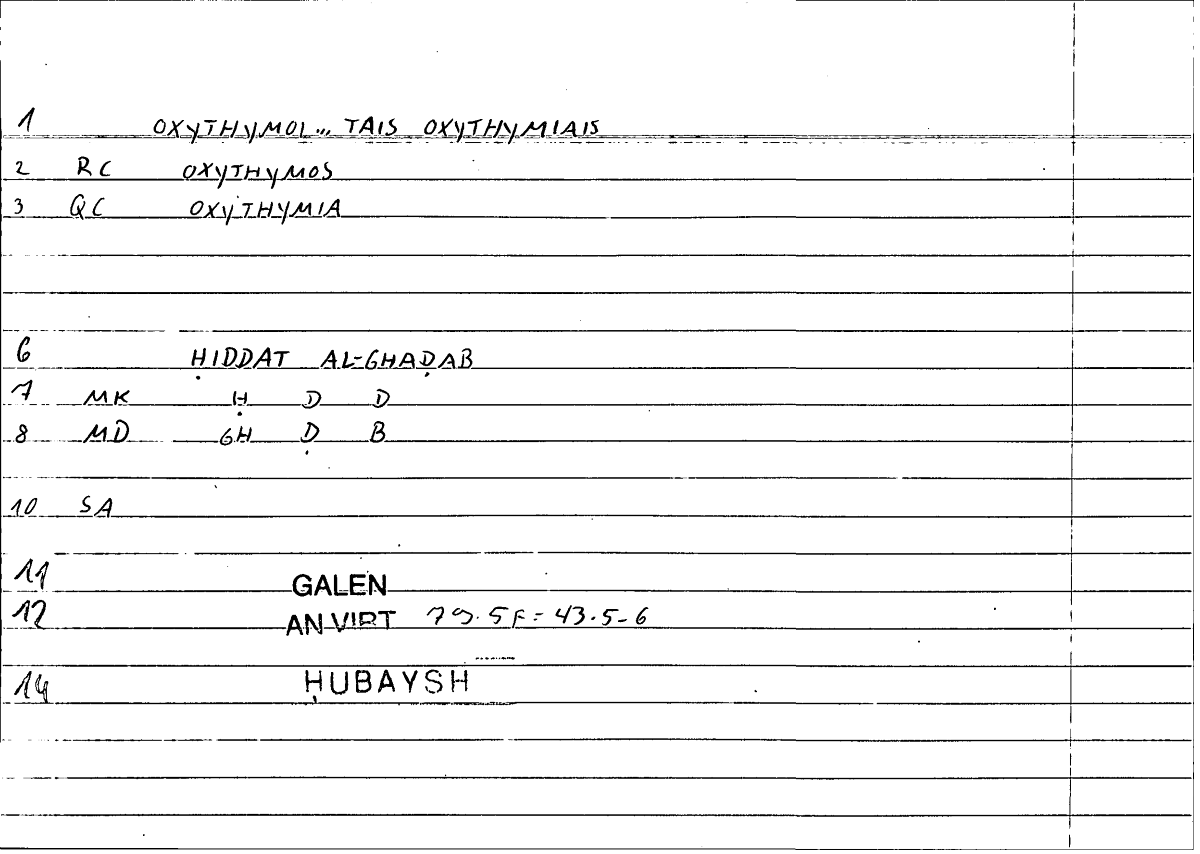 1 OXYTHYMOI... TAIS OXYTHYMIAIS
2 RC OXYTHYMOS
3 QC OXYTHYMIA
6 ḤIDDAT AL-GHAḌAB
7 MK Ḥ D D
8 MD GH Ḍ B
10 SA
11 GALEN
12 AN VIRT 79.5F = 43.5-6
14 ḤUBAYSH